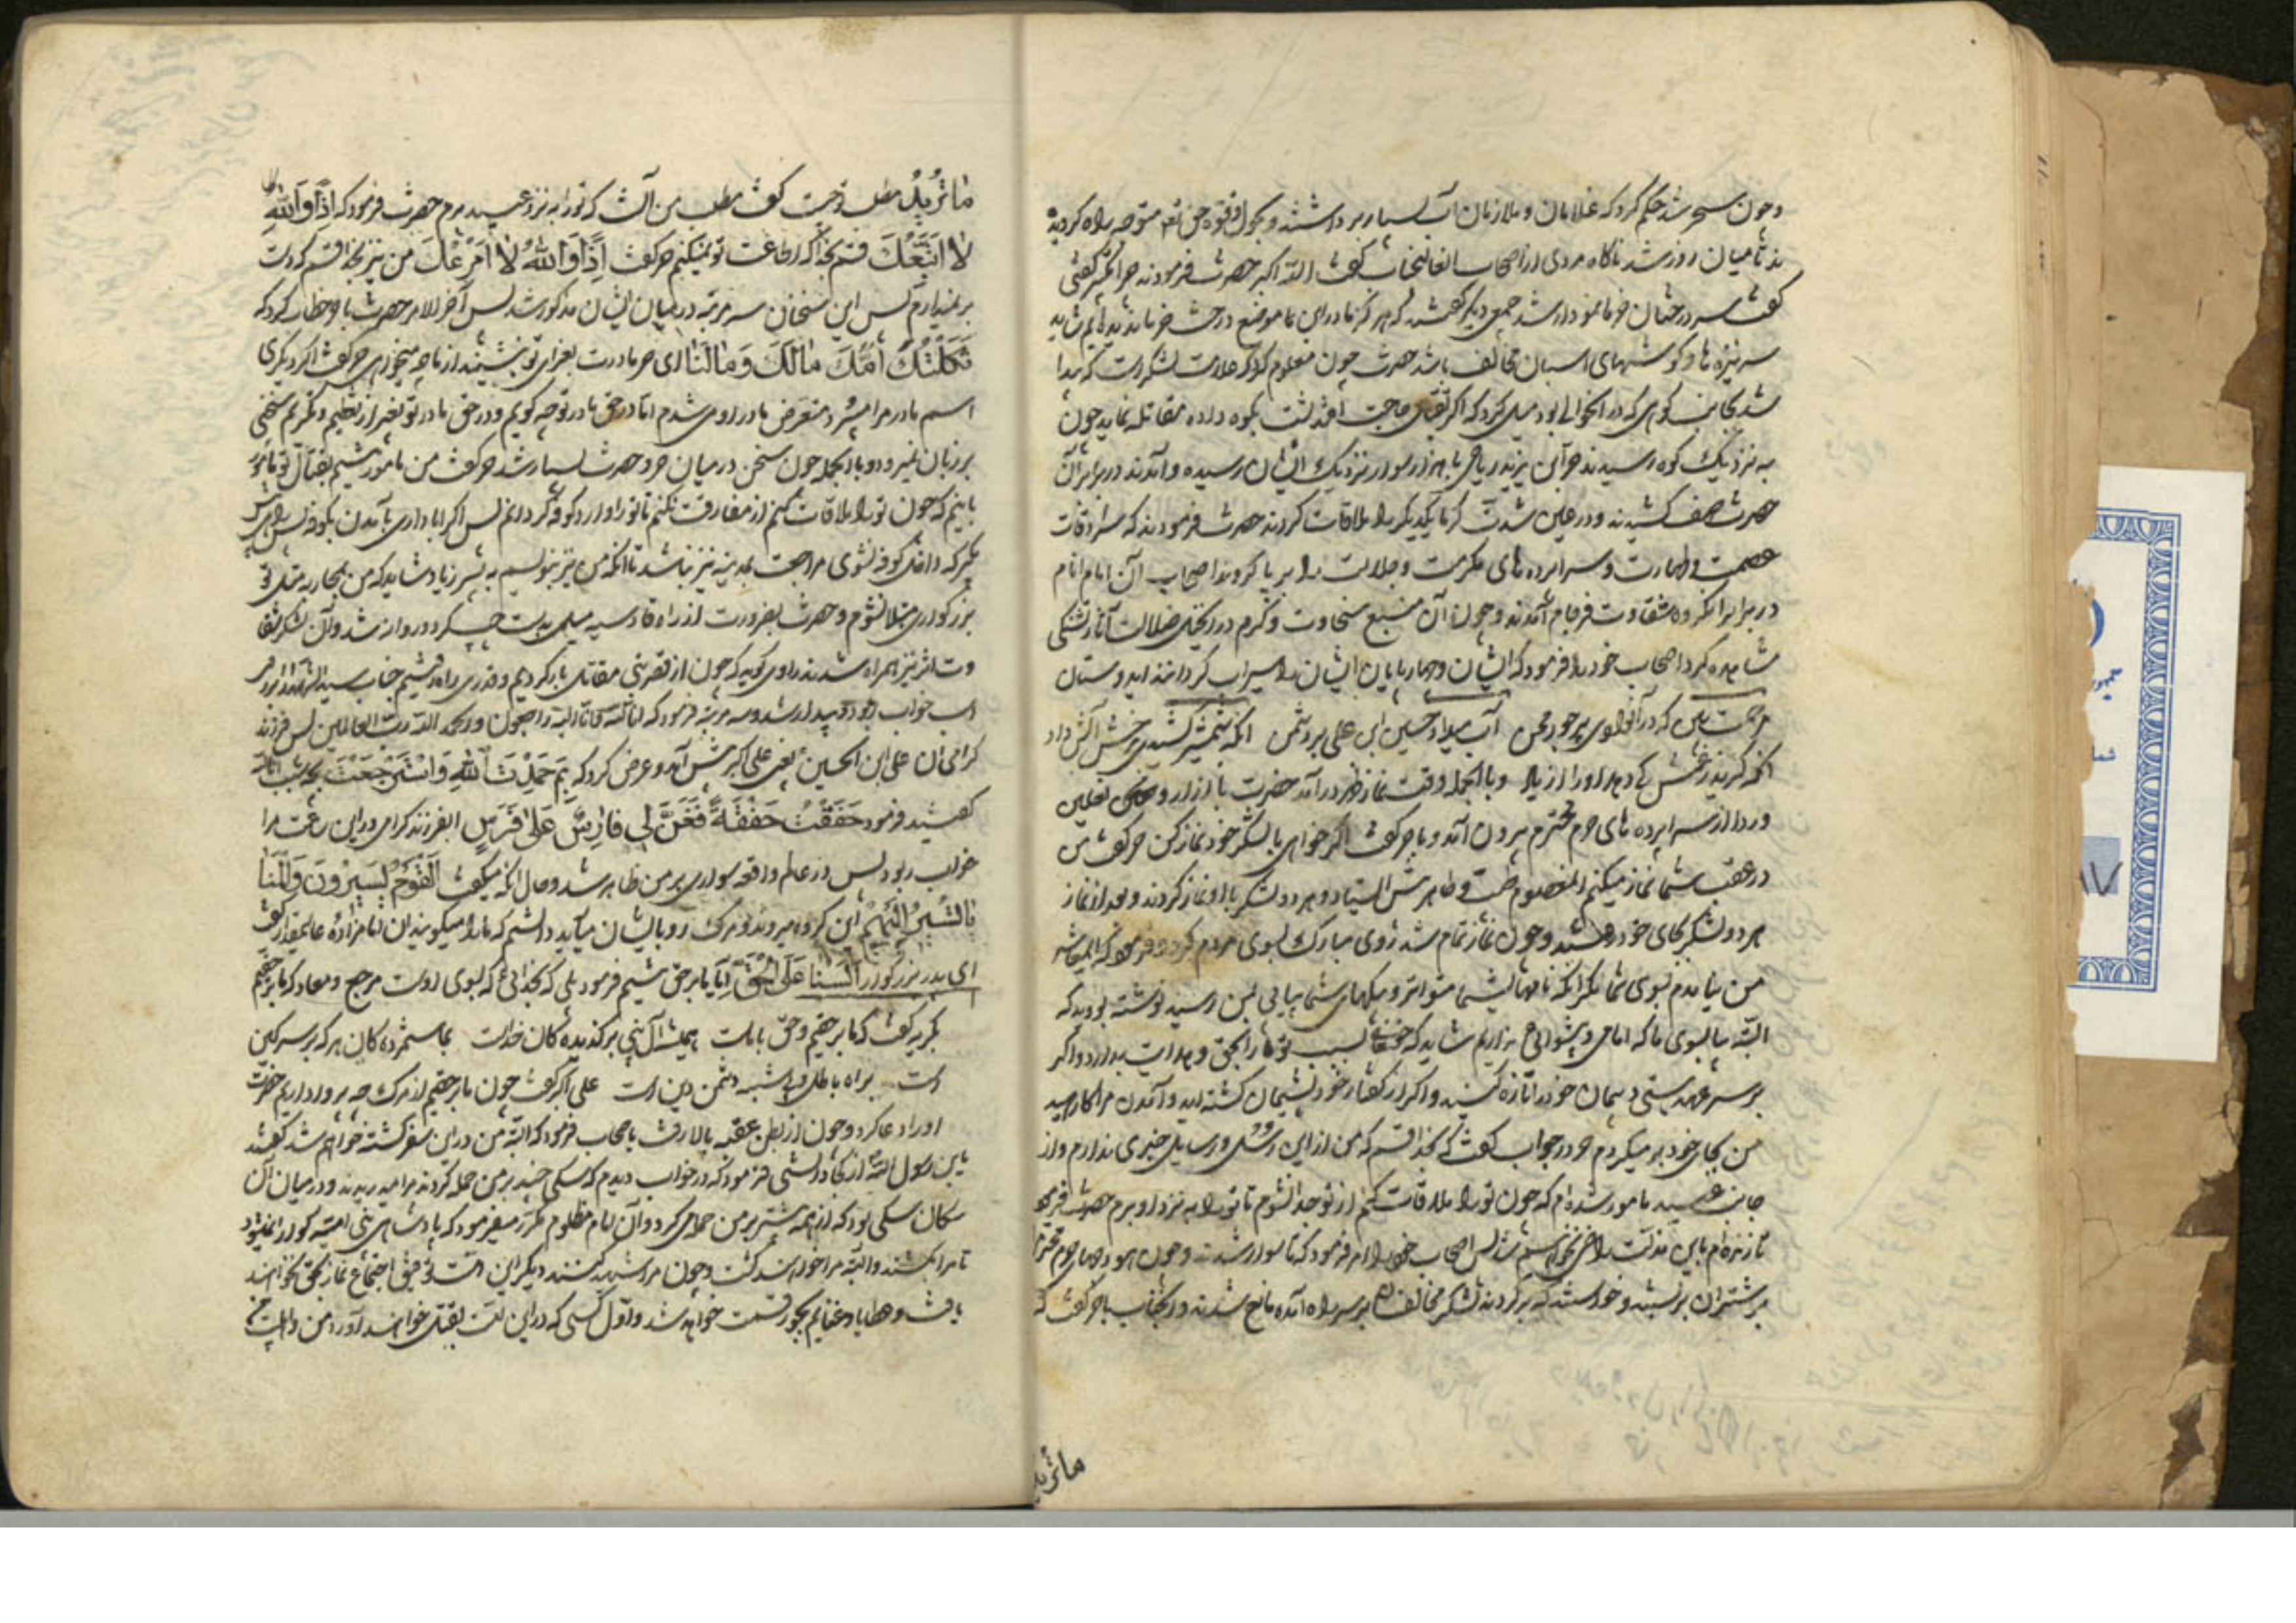 و چون سحر شد حکم کرد که غلامان و ملازمان آب بسیار برداشتند و بحول و قوه حق تعالی متوجه راه کردیدند
تا میان روز شد ناکاه مردی از اصحاب آنعالیجناب کفت الله اکبر حضرت فرمودند چرا تکبیر کفتی
کفت سر درختان خرما نمودار شد جمعی دیکر کفتند که هرکز ما در این موضع درخت خرما ندیده ایم شاید
سر نیزه ها و کوشهای اسبان مخالف باشد حضرت چون معلوم کرد که علامت لشکر است که پیدا
شد بجانب کوهی که در آنحوالی بود میل کرد که اکر بقتال حاجت افتد پشت بکوه داده مقاتله نماید چون
به نزدیک کوه رسیدند حر ابن یزید ریاحی با هزار سوار نزدیک ایشان رسیده و آمدند در برابر آن
حضرت صف کشیدند و در عین شدت کرما یکدیکر را ملاقات کردند حضرت فرمودند که سرادقات
عصمت و طهارت و سراپرده های مکرمت و جلالت را بر پا کردند اصحاب آن امام انام
در برابر آنکروه شقاوت فرجام آمدند و چون آن منبع سخاوت و کرم در آنخیل ضلالت آثار تشنکی
مشاهده کرد اصحاب خود را فرمود که ایشان و چهارپایان ایشان را سیراب کردانند ای دوستان
مرحمت بین که در آنوادی آب میداد حسین ابن علی بر دشمن آنکه شمشیر کشیدی برخش آتش داد
آنکه
و با الجمله وقت نماز ظهر در آمد حضرت با ازار و نعلین
و ردا از سراپرده های حرم محترم بیرون آمد و با حر کفت اکر خواهی با لشکر خود نماز کن حر کفت من
در عقب شما نماز میکنم آنمعصوم پیش ایستاد و هر دو لشکر با او نماز کردند و بعد از نماز
هر دو لشکر بجای خود رفتند و چون نماز تمام شد روی مبارک بسوی مردم کرد و فرمود که
من نیامدم بسوی شما مکر آنکه نامهای شما متواتر و پیکهای شما پیاپی بمن رسید نوشته بودید که
البته بیا بسوی ما که امامی و پیشوائی نداریم شاید که حقتعالی بسبب تو ما را بحق و هدایت بدارد و اکر
بر سر عهد هستید پیمان خود را تازه کنید و اکر از کفتار خود پشیمان کشته اید و آمدن مرا کارهید
من بجای خود بر میکردم حر در جواب کفت که بخدا قسم که من از این رسل و رسایل خبری ندارم و از
جانب عبید مامور شده ام که چون تو را ملاقات کنم از تو جدا نشوم تا تو را به نزد او برم حضرت فرمود
تا زنده ام باین مذلت راضی نخواهم شد پس اصحاب خود را امر فرمود که تا سوار شدند و چون هودجهای حرم محترم
بر شتران بر بستند و خواستند که بر کردند لشکر مخالف بر سر راه آمده مانع شدند و آنجناب با حر کفت که
ماترید
ماتُریدُ مطلب توچیست کفت مطلب من آنست که تو را به نزد عبید برم حضرت فرمود که اِذًا وَ اللّٰهِ
لا اَتَّبِعُکَ قسم بخدا که اطاعت تو نمیکنم حر کفت اِذًا وَ اللّٰهِ لا اَدَعُکَ من نیز بخدا قسم که دست
بر نمیدارم پس این سخنان سه مرتبه در میان ایشان مذکور شد پس آخر الامر حضرت با او خطاب کرد که
ثَکَلَتْکَ اُمُّکَ مالَکَ وَ مالَنا ای حر مادرت بعزای تو نشیند از ما چه میخواهی حر کفت اکر دیکری
اسم مادر مرا میبرد متعرض مادر او می شدم اما در حق مادر تو چه کویم و در حق مادر تو بغیر از تعظیم و تکریم سخنی
بر زبان نمیرود و بالجمله چون سخن در میان حر و حضرت بسیار شد حر کفت من مامور نیستم بقتال تو مامور
باینم که چون تو را ملاقات کنم از تو مفارقت نکنم تا تو را وارد کوفه کردانم پس اکر ابا داری بآمدن بکوفه پس راهی
بکیر که داخل کوفه نشوی مراجعت بمدینه نیز نباشد تا آنکه من نیز بنویسم به پسر زیاد شاید که من بمحاربه مثل تو
بزرکواری مبتلا نشوم و حضرت بضرورت از راه قادسیه میل بدست چپ کرد و روانه شد و آن لشکر شقا
وت اثر نیز همراه شدند راوی کوید که چون از قصر بنی مقاتل بار کردیم و قدری راه رفتیم جناب سید الشهدا را بر
اسب خواب ربود و بیدار شد و سه مرتبه فرمود که انا لله و انا الیه راجعون و الحمد لله رب العالمین پس فرزند
کرامی آن علی ابن الحسین یعنی علی اکبر پیش آمد و عرض کرد که بِمَ حَمِدْتَ اللّٰهِ وَ اسْتَرْجَعْتَ بچه سبب
کفتید فرمود خَفَقْتُ خَفْقَةً فَعَنَّ لی فارِسٌ عَلیٰ فَرَسٍ ایفرزند کرامی در این ساعت مرا
خواب ربود پس در عالم واقعه سواری بر من ظاهر شد و حال آنکه میکفت اَلْقَوْمُ یَسیرُونَ وَ الْمَنایا
تَسیرُ اِلَیْهِمْ این کروه میروند و مرک رو بایشان میآید دانستم که ما را میکویند آن امام زاده عالیمقدار کفت
ای پدر بزرکوار اَلَسْنا عَلَی الْحَقِّ آیا ما بر حق نیستیم فرمود بلی که بخدائی که بسوی اوست مرجع و معاد که ما بر حقیم
مکرر کفت که ما بر حقیم و حق با ماست همیشه آل نبی برکذیده کان خداست بما ستمزده کان هر که بر سر کین
است براه باطل و بی شبهه دشمن دین است علی اکبر کفت چون ما بر حقیم از مرک چه پروا داریم حضرت
او را دعا کرد و چون از بطن عقبه بالا رفت باصحاب فرمود که البته من در این سفر کشته خواهم شد کفتند
یابن رسول الله از کجا دانستی فرمود که در خواب دیدم که سکی چند بر من حمله کردند مرا میدریدند و در میان آن
سکان سکی بود که از همه بیشتر بر من حمله می کرد و آن امام مظلوم مکرر میفرمود که پادشاهی بنی امیه کوارا نمیشود
تا مرا بکشند و البته مرا خواهند کشت و چون مرا شهید کنند دیکر این امت توفیق اجتماع نماز بحق نخواهند
یافت و عطایا و غنایم بجور قسمت خواهد شد و اول کسی که در این امت بقتل خواهند آورد من و اهلبیت